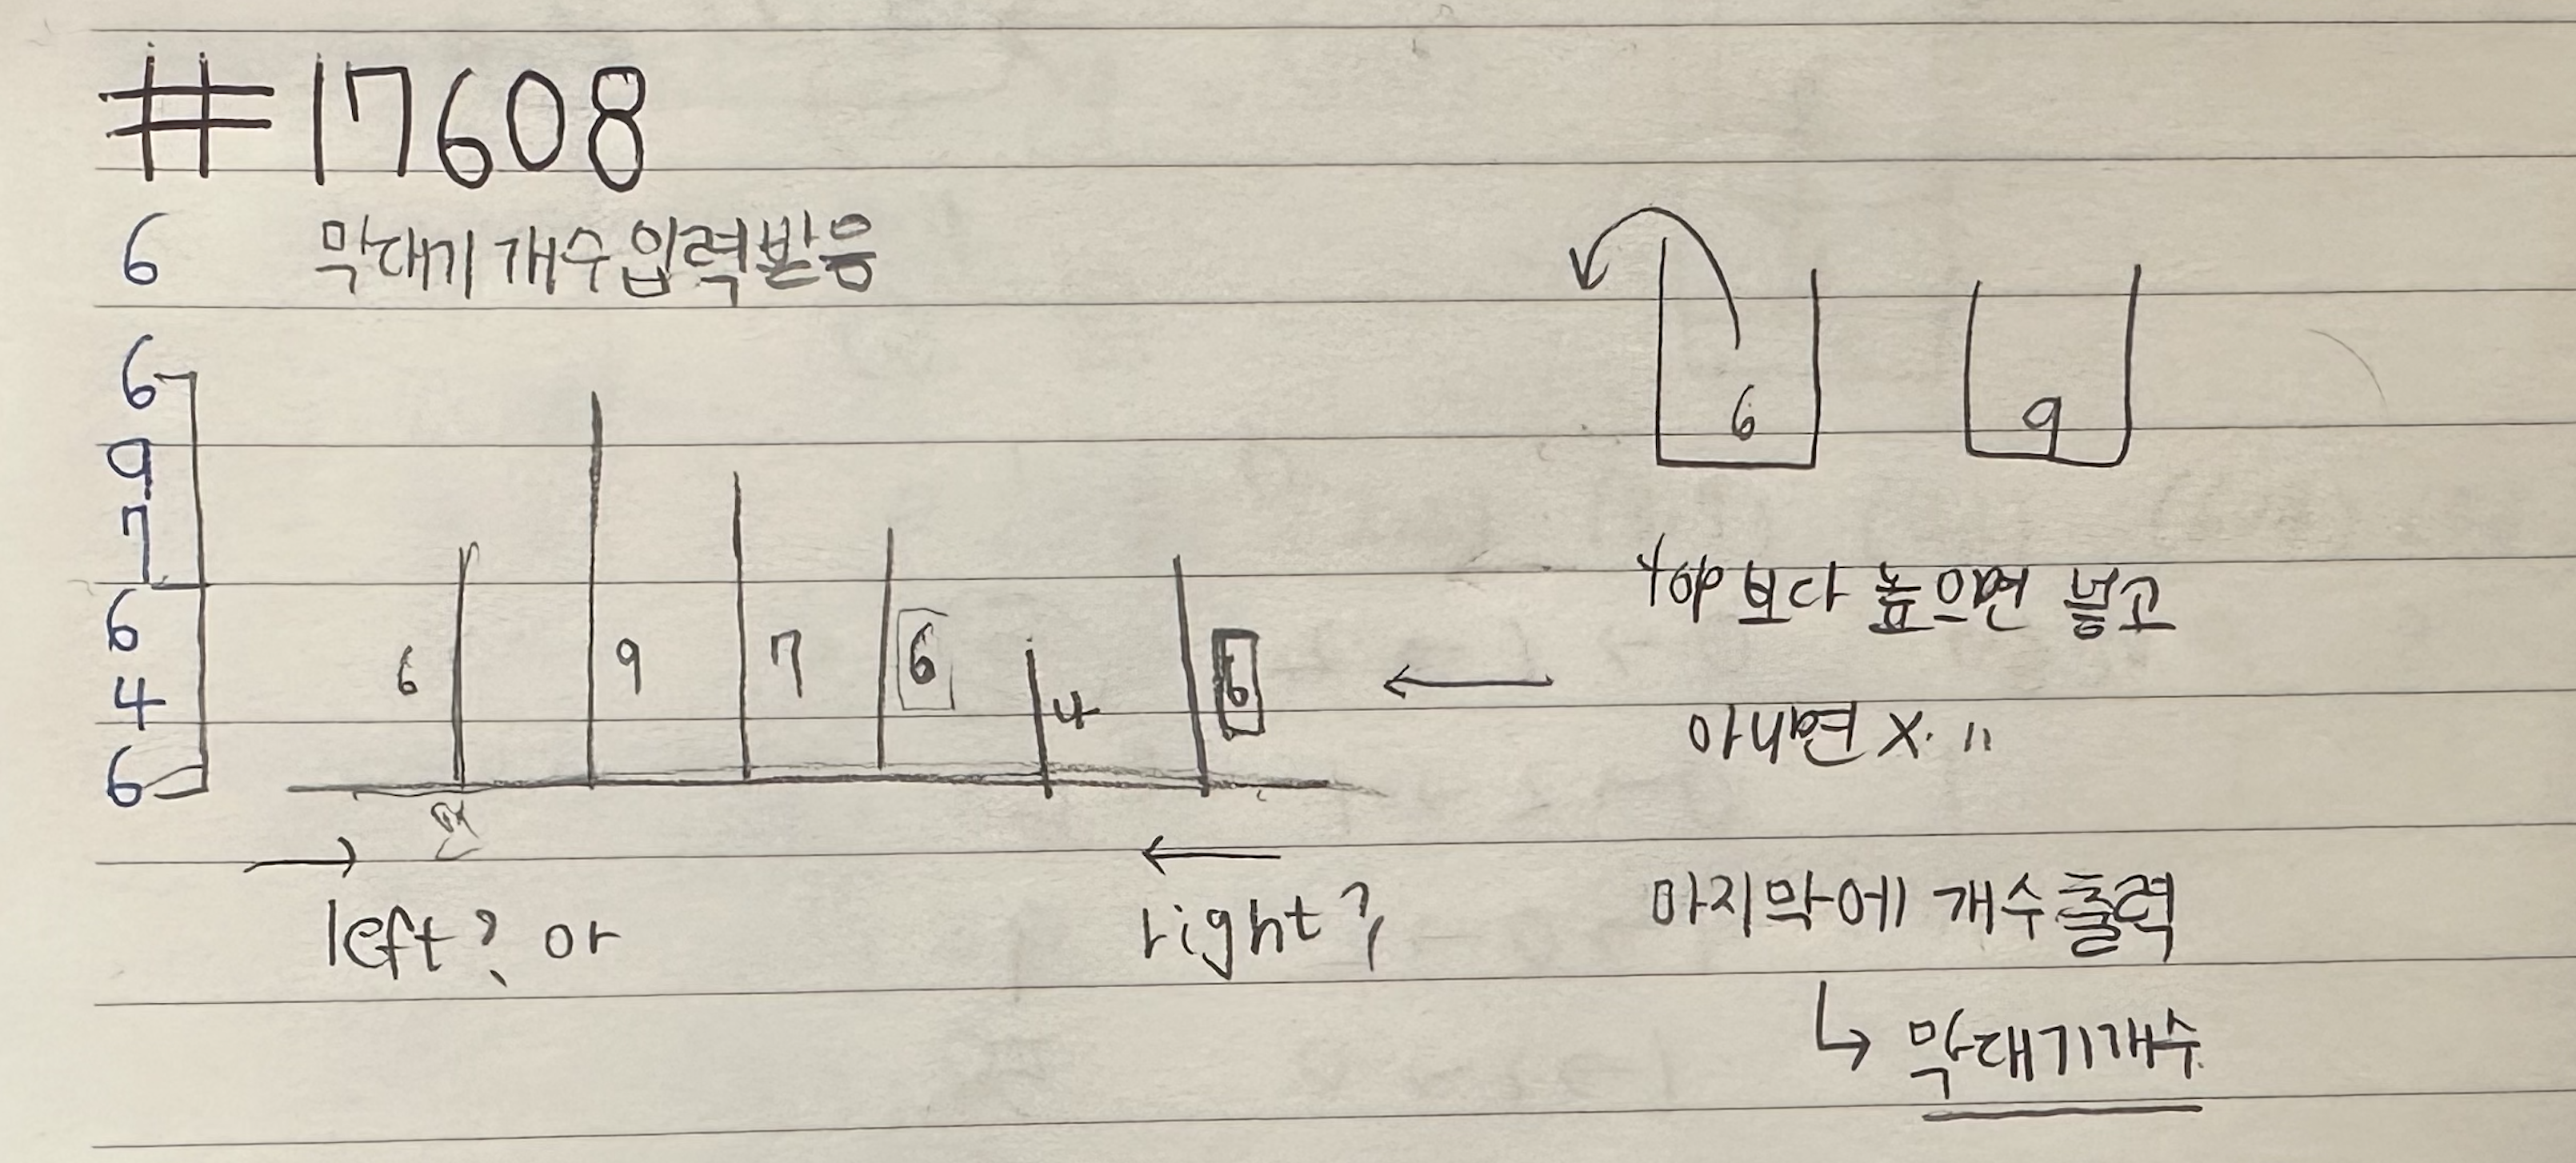 #17608
6 막대기 개수 입력받음
6
9
7
6
4
6
6 9 7 6 4 6
left? or right?
6 9
top보다 높으면 넣고
아니면 X. "
마지막에 개수 출력
↳ 막대기개수